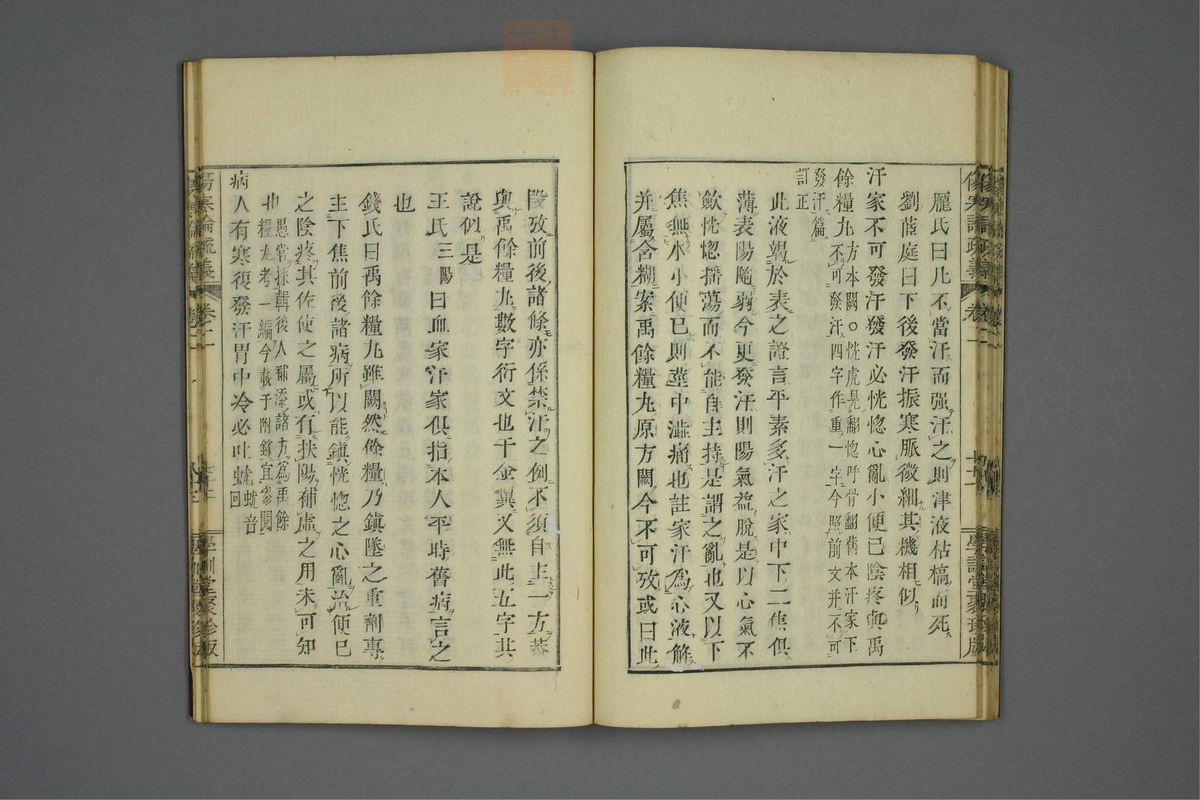 傷寒論疏義 卷二 十二 學訓堂聚珍版
龐氏曰凡不當汗而强汗之則津液枯槁而死
劉茝庭曰下後發汗振寒脈微細其機相似
汗家不可發汗發汗必恍惚心亂小便已陰疼與禹
餘糧丸方本闕○恍虎晃翻惚呼骨翻舊本汗家下不可發汗四字作重一字今照前文并不可
發汗篇訂正
此液竭於表之證言平素多汗之家中下二焦俱
薄表陽隨弱今更發汗則陽氣益脫是以心氣不
歛恍惚搖蕩而不能自主持是謂之亂也又以下
焦無水小便已則莖中澁痛也註家汗爲心液解
并屬含糊案禹餘糧丸原方闕今不可攷或曰此
段攷前後諸條亦係禁汗之例不須自主一方葢
與禹餘糧丸數字衍文也千金翼又無此五字其
說似是
王氏三陽曰血家汗家俱指本人平時舊病言之
也
錢氏曰禹餘糧丸雖闕然餘糧乃鎭墜之重劑專
主下焦前後諸病所以能鎭恍惚之心亂治便已
之陰疼其佐使之屬或有扶陽補虛之用未可知
也愚嘗採輯後人補添諸方爲禹餘糧丸考一編今載于附錄宜參閱
病人有寒復發汗胃中冷必吐蚘蚘音回
傷寒論疏義 卷二 十三 學訓堂聚珍版